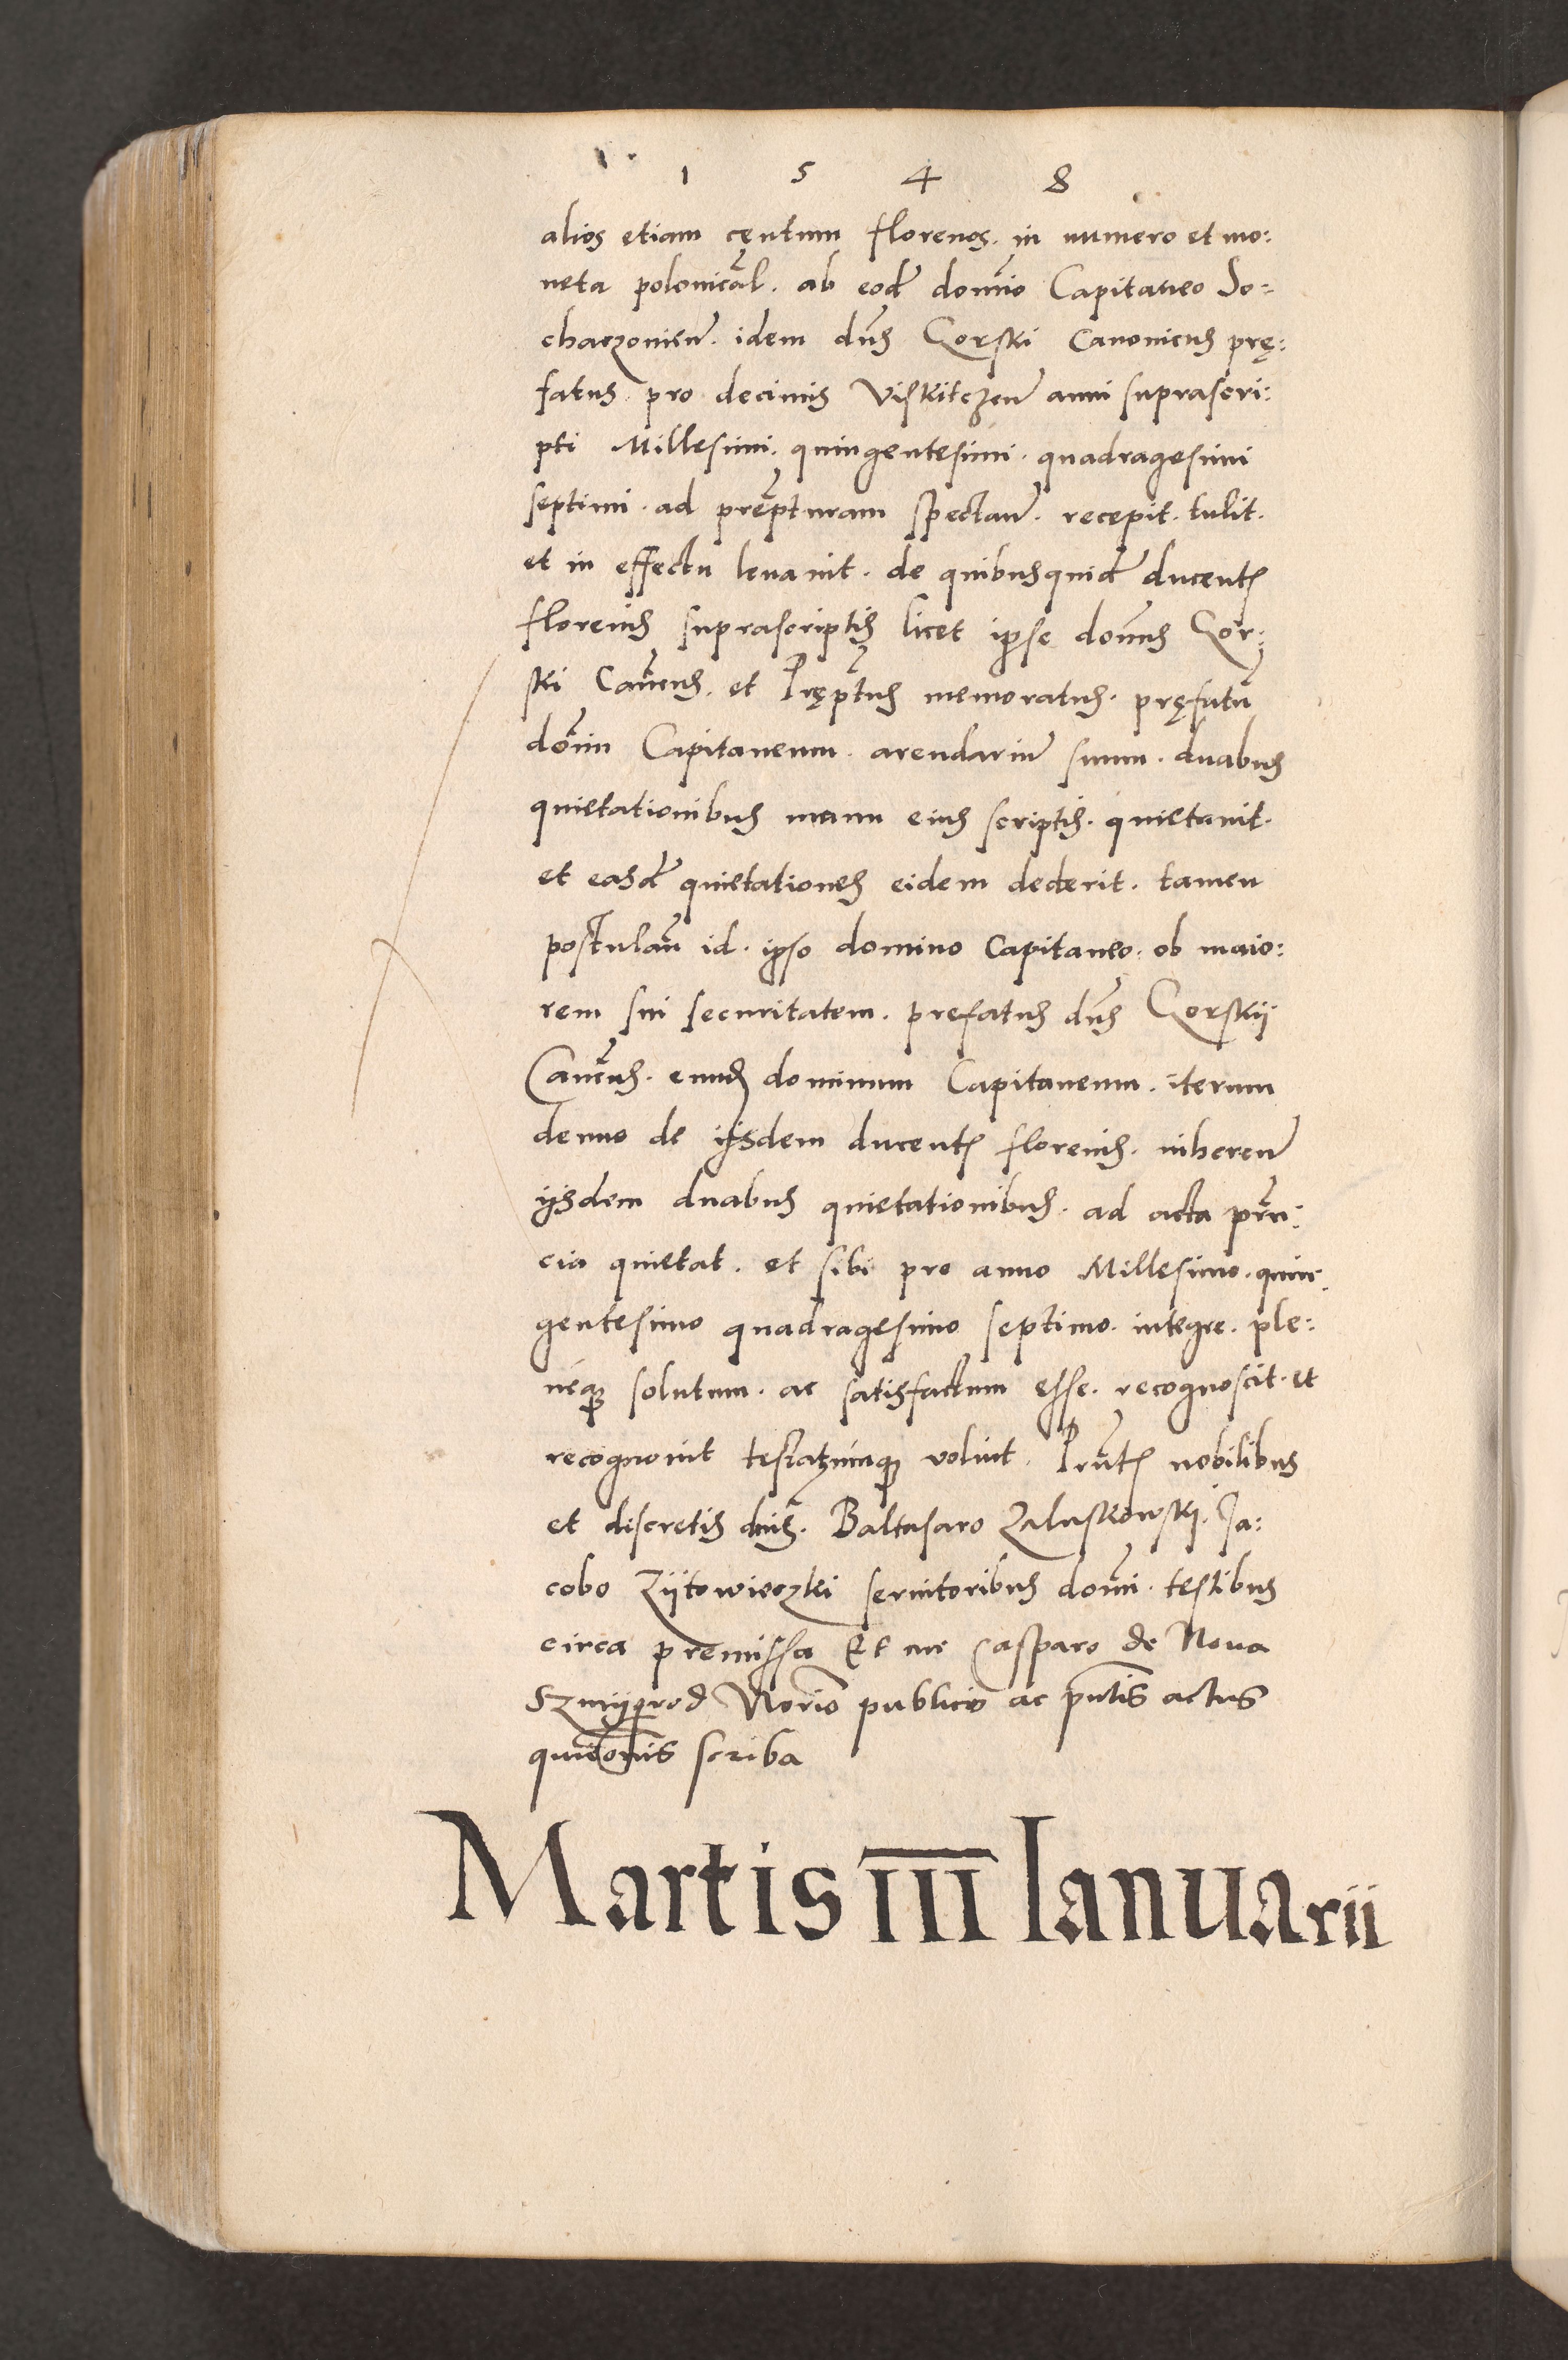 1 5 4 8
alios etiam cęntum florenos. in numero et mo:
neta polonical̃. ab eod̃ domĩo Capitaneo So-
chaczouien̄. idem dñs Gorski Canonicus prę:
fatus. pro decimis Viskitczen̄ anni suprascri:
pti Millesimi. quingentesimi. quadragesimi
septimi. ad prẽpturam spectan̄. recepit. tulit.
et in effectu leuauit. de quibusquid̃ ducentꝭ
florenis suprascriptis licet ipse domñs Gor:
ski Cañcus. et Pręptũs memoratus. pręfatũ
domĩn Capitaneum. arendariũ suum. duabus
quietationibus manu eius scriptis. quietauit.
et easd̃ quietationes eidem dederit. tamen
postulañ id. ipso domino Capitaneo. ob maio:
rem sui securitatem. prefatus dñs Gorskij
Cañcus. eundꝫ dominum Capitaneum. iterum
denuo de ijsdem ducentꝭ florenis. inheren̄
ijsdem duabus quietationibus. ad acta prñ:
cia quietat. et sibi pro anno Millesimo. quin-
gentesimo quadragesimo septimo. integre. ple:
neqꝫ solutum. ac satisfactum esse. recognoscit. et
recognouit testatumqꝫ voluit. Prñtꝭ nobilibus
et discretis dñis. Baltasaro Zaluskowski. Ja:
cobo Zijtowieczki seruitoribus domĩ. testibus
circa premissa Et me Casparo de Noua
Szmijgrod Norĩo publico ac pñtis actus
quietõnis scriba
Martis III Ianuarii